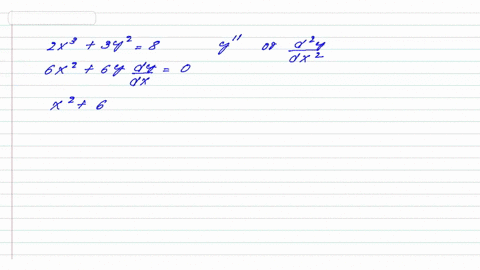 2x³ + 3y² = 8 y'' or d²y/dx²
6x² + 6y dy/dx = 0
x² + 6